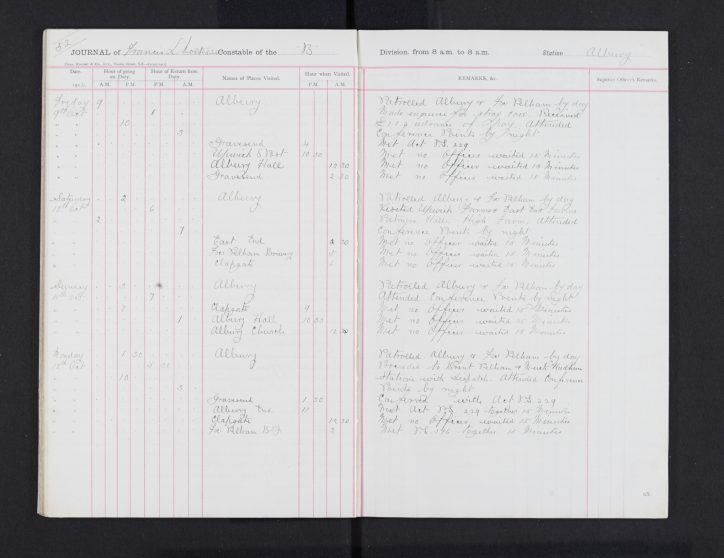 JOURNAL of Francis L Constable of the "B" Division, from 8 a.m. to 8 a.m. Station Albury
Date. Hour of going on Duty. Hour of Return from Duty. Names of Places Visited. Hour when Visited. REMARKS, &c. Superior Officer's Remarks.
A.M. P.M. P.M. A.M. P.M. A.M.
Friday 9 Albury Patrolled Albury & Fx Pelham by day
Oct 1 Made enquiries for stray cow. Received
10 advance of Pay. Attended
3 Conference Points by night
Gravesend 4 Met Act P.S. 229
Upwich 10 30 Met no Officer waited 15 Minutes
Albury Hall 12 30 Met no Officer waited 15 Minutes
Gravesend 2 30 Met no Officer waited 15 Minutes
Saturday 2 Albury Patrolled Albury & Fx Pelham by day
Oct 6 Visited Upwich Farm & East End Farm
2 Hall High Farm. Attended
7 Conference Point by night
East End 30 Met no Officer waited 15 Minutes
Fx Pelham Met no Officer waited 15 Minutes
Clapgate Met no Officer waited 15 Minutes
Sunday Albury Patrolled Albury & Fx Pelham by day
Oct 7 Attended Conference Points by night
Clapgate 9 Met no Officer waited 15 Minutes
1 Albury Hall 10 30 Met no Officer waited 15 Minutes
Albury Church 12 Met no Officer waited 15 Minutes
Monday 1 30 Albury Patrolled Albury & Fx Pelham by day
Oct 30 Proceeded to Brent Pelham & Much Hadham
10 Stations with despatch. Attended Conference
5 Points by night
Gravesend 1 30 Conferred with Act P.S. 229
Albury End 11 Met Act P.S. 229 together 15 Minutes
Clapgate 12 30 Met no Officer waited 15 Minutes
Fx Pelham 2 Met P.C. 196 together 15 Minutes